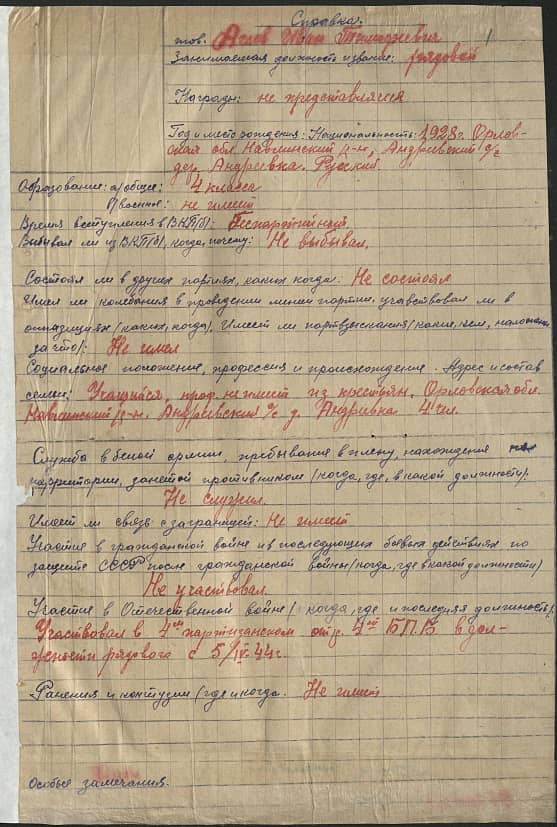 Справка.
тов. Агеев Иван Тимофеевич
Занимаемая должность и звание: рядовой
Награды: не представлялся
Год и место рождения: Национальность: 1928 г. Орлов-
ская обл. Навлинский р-н, Андреевский с/с
дер. Андреевка. Русский.
Образование: а/общее: 4 класса
в/военное: не имеет
Время вступления в ВКП/б/: Беспартийный.
Выбывал ли из ВКП/б/, когда, почему: Не выбывал.
Состоял ли в других партиях, каких когда: Не состоял
Имел ли колебания в проведении линии партии, участвовал ли в
оппозициях /каких, когда/, Имеет ли партвзыскания /какие, кем, наложены
за что/: Не имел
Социальное положение, профессия и происхождение. Адрес и состав
семьи: Учащийся, проф. не имеет из крестьян. Орловская обл.
Навлинский р-н. Андреевский с/с д. Андреевка 4 чел.
Служба в белой армии, пребывание в плену, нахождение на
территории, занятой противником /когда, где, в какой должности/:
Не служил.
Имеет ли связь с заграницей: Не имеет
Участие в гражданской войне и в последующих боевых действиях по
защите СССР после гражданской войны /когда, где в какой должности/
Не участвовал.
Участие в Отечественной войне / когда, где и последняя должность/:
Участвовал в 4ом партизанском отр. 4ой БПБ в дол-
жности рядового с 5/IV.44 г.
Ранения и контузии /где и когда. Не имеет
Особые замечания.